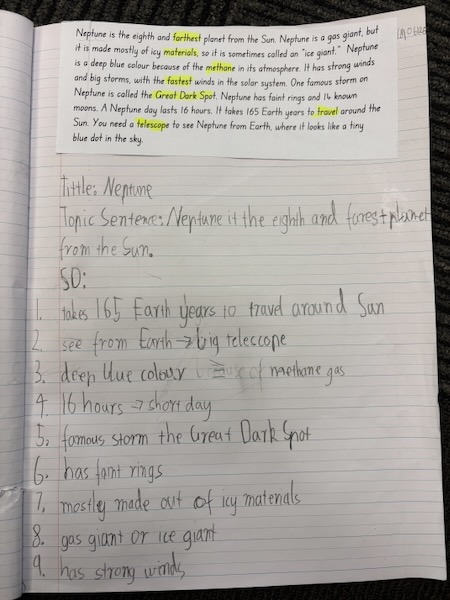 Neptune is the eighth and farthest planet from the Sun. Neptune is a gas giant, but
it is made mostly of icy materials, so it is sometimes called an "ice giant." Neptune
is a deep blue colour because of the methane in its atmosphere. It has strong winds
and big storms, with the fastest winds in the solar system. One famous storm on
Neptune is called the Great Dark Spot. Neptune has faint rings and 14 known
moons. A Neptune day lasts 16 hours. It takes 165 Earth years to travel around the
Sun. You need a telescope to see Neptune from Earth, where it looks like a tiny
blue dot in the sky.
Tittle: Neptune
Topic Sentence: Neptune it the eighth and farest planet
from the Sun.
SD:
1. takes 165 Earth years to travel around Sun
2. see from Earth → big telescope
3. deep blue colour of methane gas
4. 16 hours → short day
5. famous storm the Great Dark Spot
6. has faint rings
7. mostly made out of icy materials
8. gas giant or ice giant
9. has strong winds